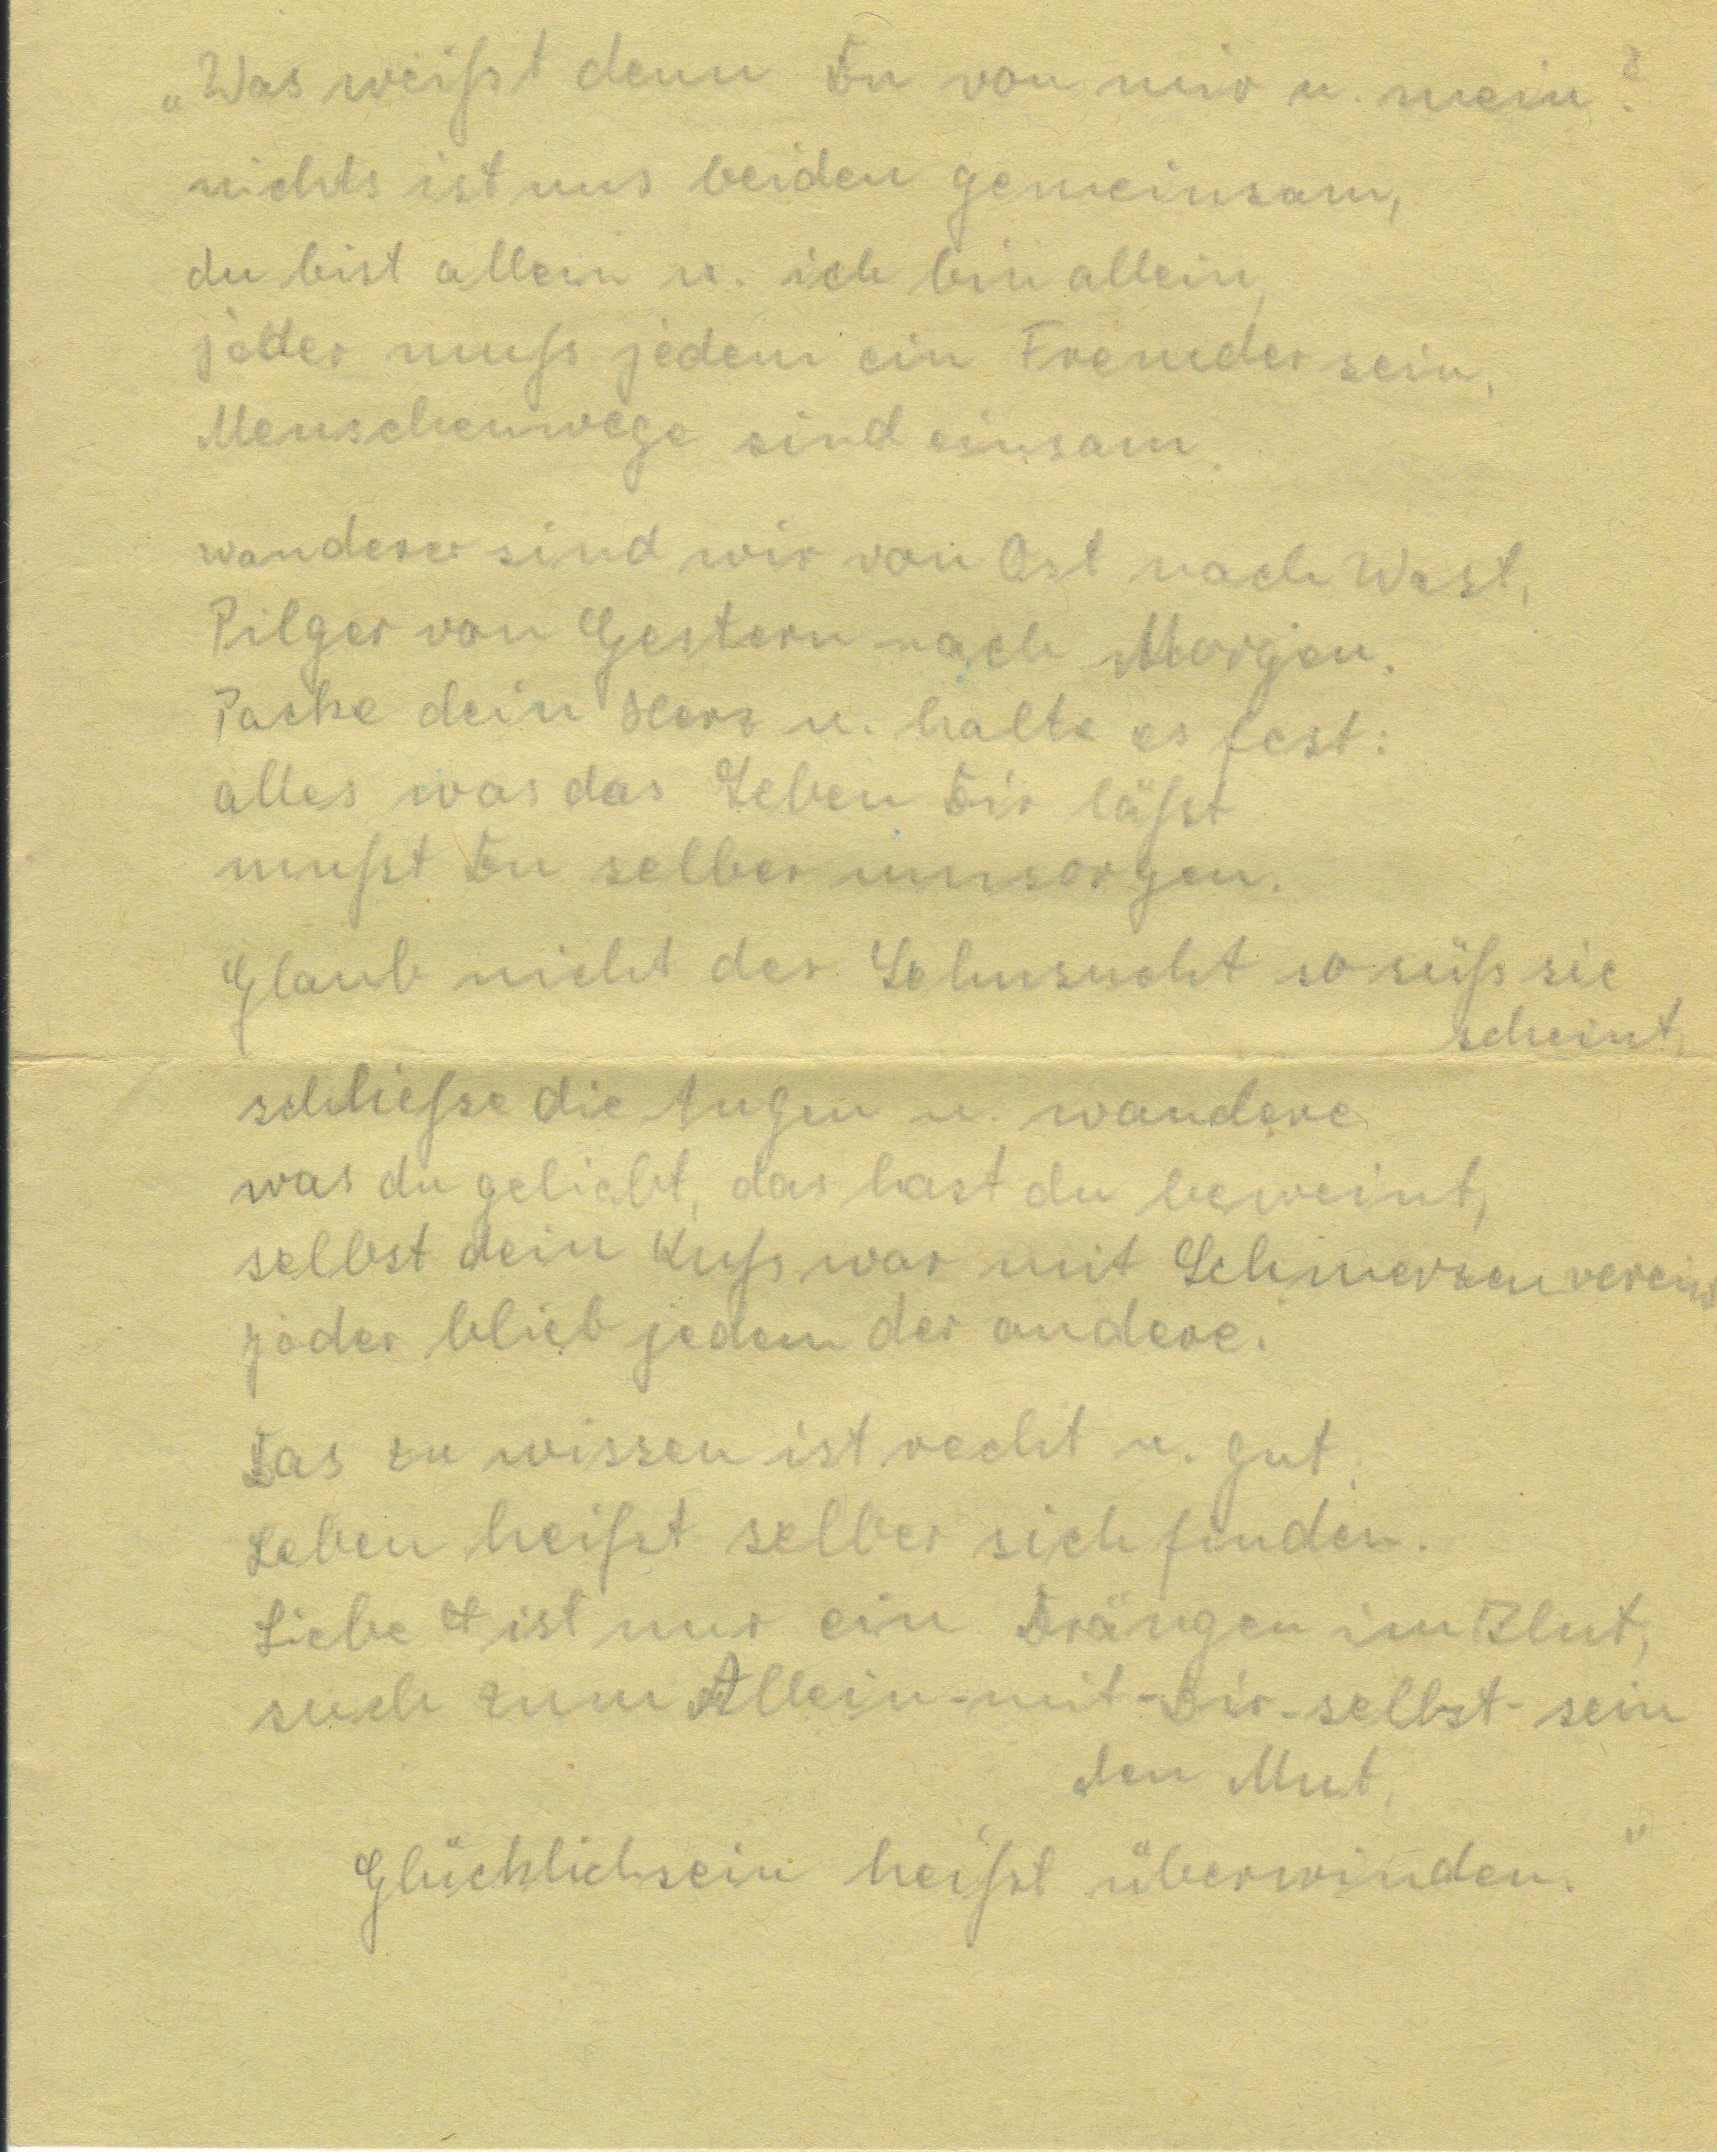 „Was weißt denn Du von mir u. mein?
nichts ist uns beiden gemeinsam,
du bist allein u. ich bin allein,
jeder muß jedem ein Fremder sein,
Menschenwege sind einsam.
wanderer sind wir von Ost nach West,
Pilger von Gestern nach Morgen.
Packe dein Herz u. halte es fest:
alles was das Leben Dir läßt
mußt Du selber umsorgen.
Glaub nicht der Sehnsucht so süß sie
scheint,
schließe die Augen u. wandere
was du geliebt, das hast du beweint,
selbst dein Kuß war mit Schmerzen vereint
jeder blieb jedem der andere.
Das zu wissen ist recht u. gut.
Leben heißt selber sich finden.
Liebe ist nur ein Drängen im Blut,
such zum Allein-mit-Dir-selbst-sein
den Mut,
Glücklichsein heißt überwinden."